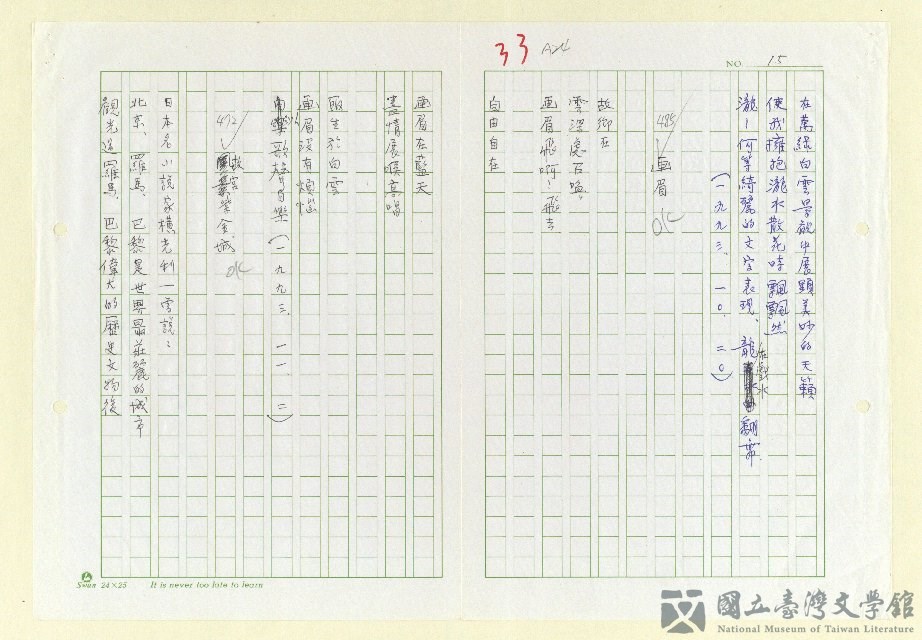 33
NO 15
在萬綠白雲景觀中展顯美妙的天籟
使我擁抱瀧水散花時飄飄然
瀧！何等綺麗的文字表現、龍在戲水翻弄．
（一九九三．一〇．二〇）
485 画眉 OK
故鄉在
雲深處召喚。
画眉飛啊！飛去
自由自在
画眉在藍天
盡情展喉高唱
画眉沒有煩惱
歌聲自樂（一九九三．一一．二）
472 故宮紫金城 OK
日本名小說家橫光利一曾說：
北京、羅馬、巴黎是世界最莊麗的城市
觀光過羅馬、巴黎偉大的歷史文物後
Swan 24×25 It is never too late to learn
國立臺灣文學館
National Museum of Taiwan Literature